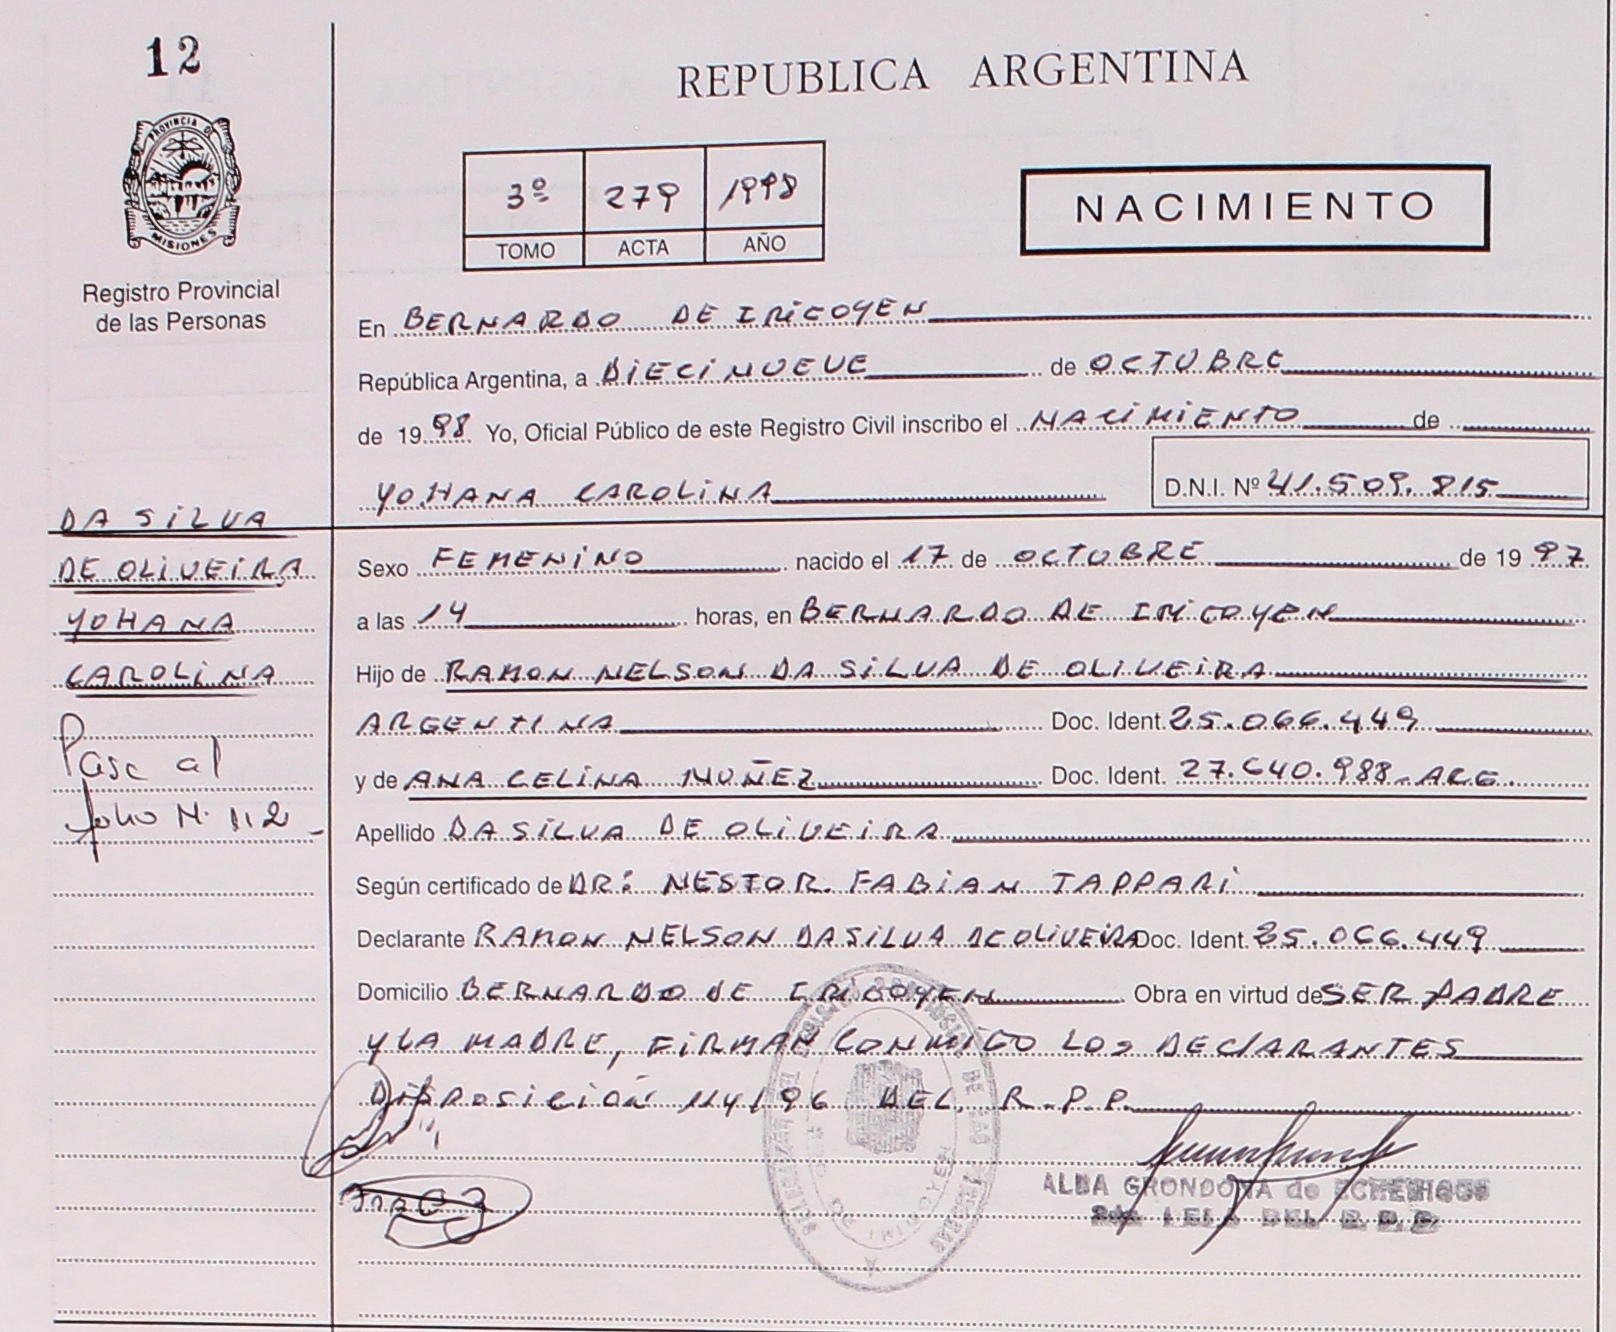 12
REPUBLICA ARGENTINA
PROVINCIA D
MISIONES
3º 279 1998
TOMO ACTA AÑO
NACIMIENTO
Registro Provincial
de las Personas
En BERNARDO DE IRIGOYEN
República Argentina, a DIECINUEVE de OCTUBRE
de 1998 Yo, Oficial Público de este Registro Civil inscribo el NACIMIENTO de
YOHANA CAROLINA D.N.I. Nº 41.509.815
DA SILVA
DE OLIVEIRA
YOHANA
CAROLINA
Pase al
folio N. 112
Sexo FEMENINO nacido el 17 de OCTUBRE de 1997
a las 14 horas, en BERNARDO DE IRIGOYEN
Hijo de RAMON NELSON DA SILVA DE OLIVEIRA
ARGENTINA Doc. Ident. 25.066.449
y de ANA CELINA MUÑEZ Doc. Ident. 27.640.988 ARG.
Apellido DA SILVA DE OLIVEIRA
Según certificado de DR: NESTOR FABIAN TAPPARI
Declarante RAMON NELSON DA SILVA DE OLIVEIRA Doc. Ident. 25.066.449
Domicilio BERNARDO DE IRIGOYEN Obra en virtud de SER PADRE
Y LA MADRE, FIRMAN CONMIGO LOS DECLARANTES
DISPOSICIÓN 114/96 DEL R.P.P.
ALBA GRONDONA de ECHENIQUE
DEL R.P.P.